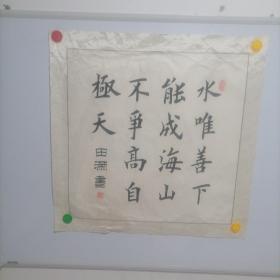 水唯善下
能成海山
不爭高自
極天
田深書